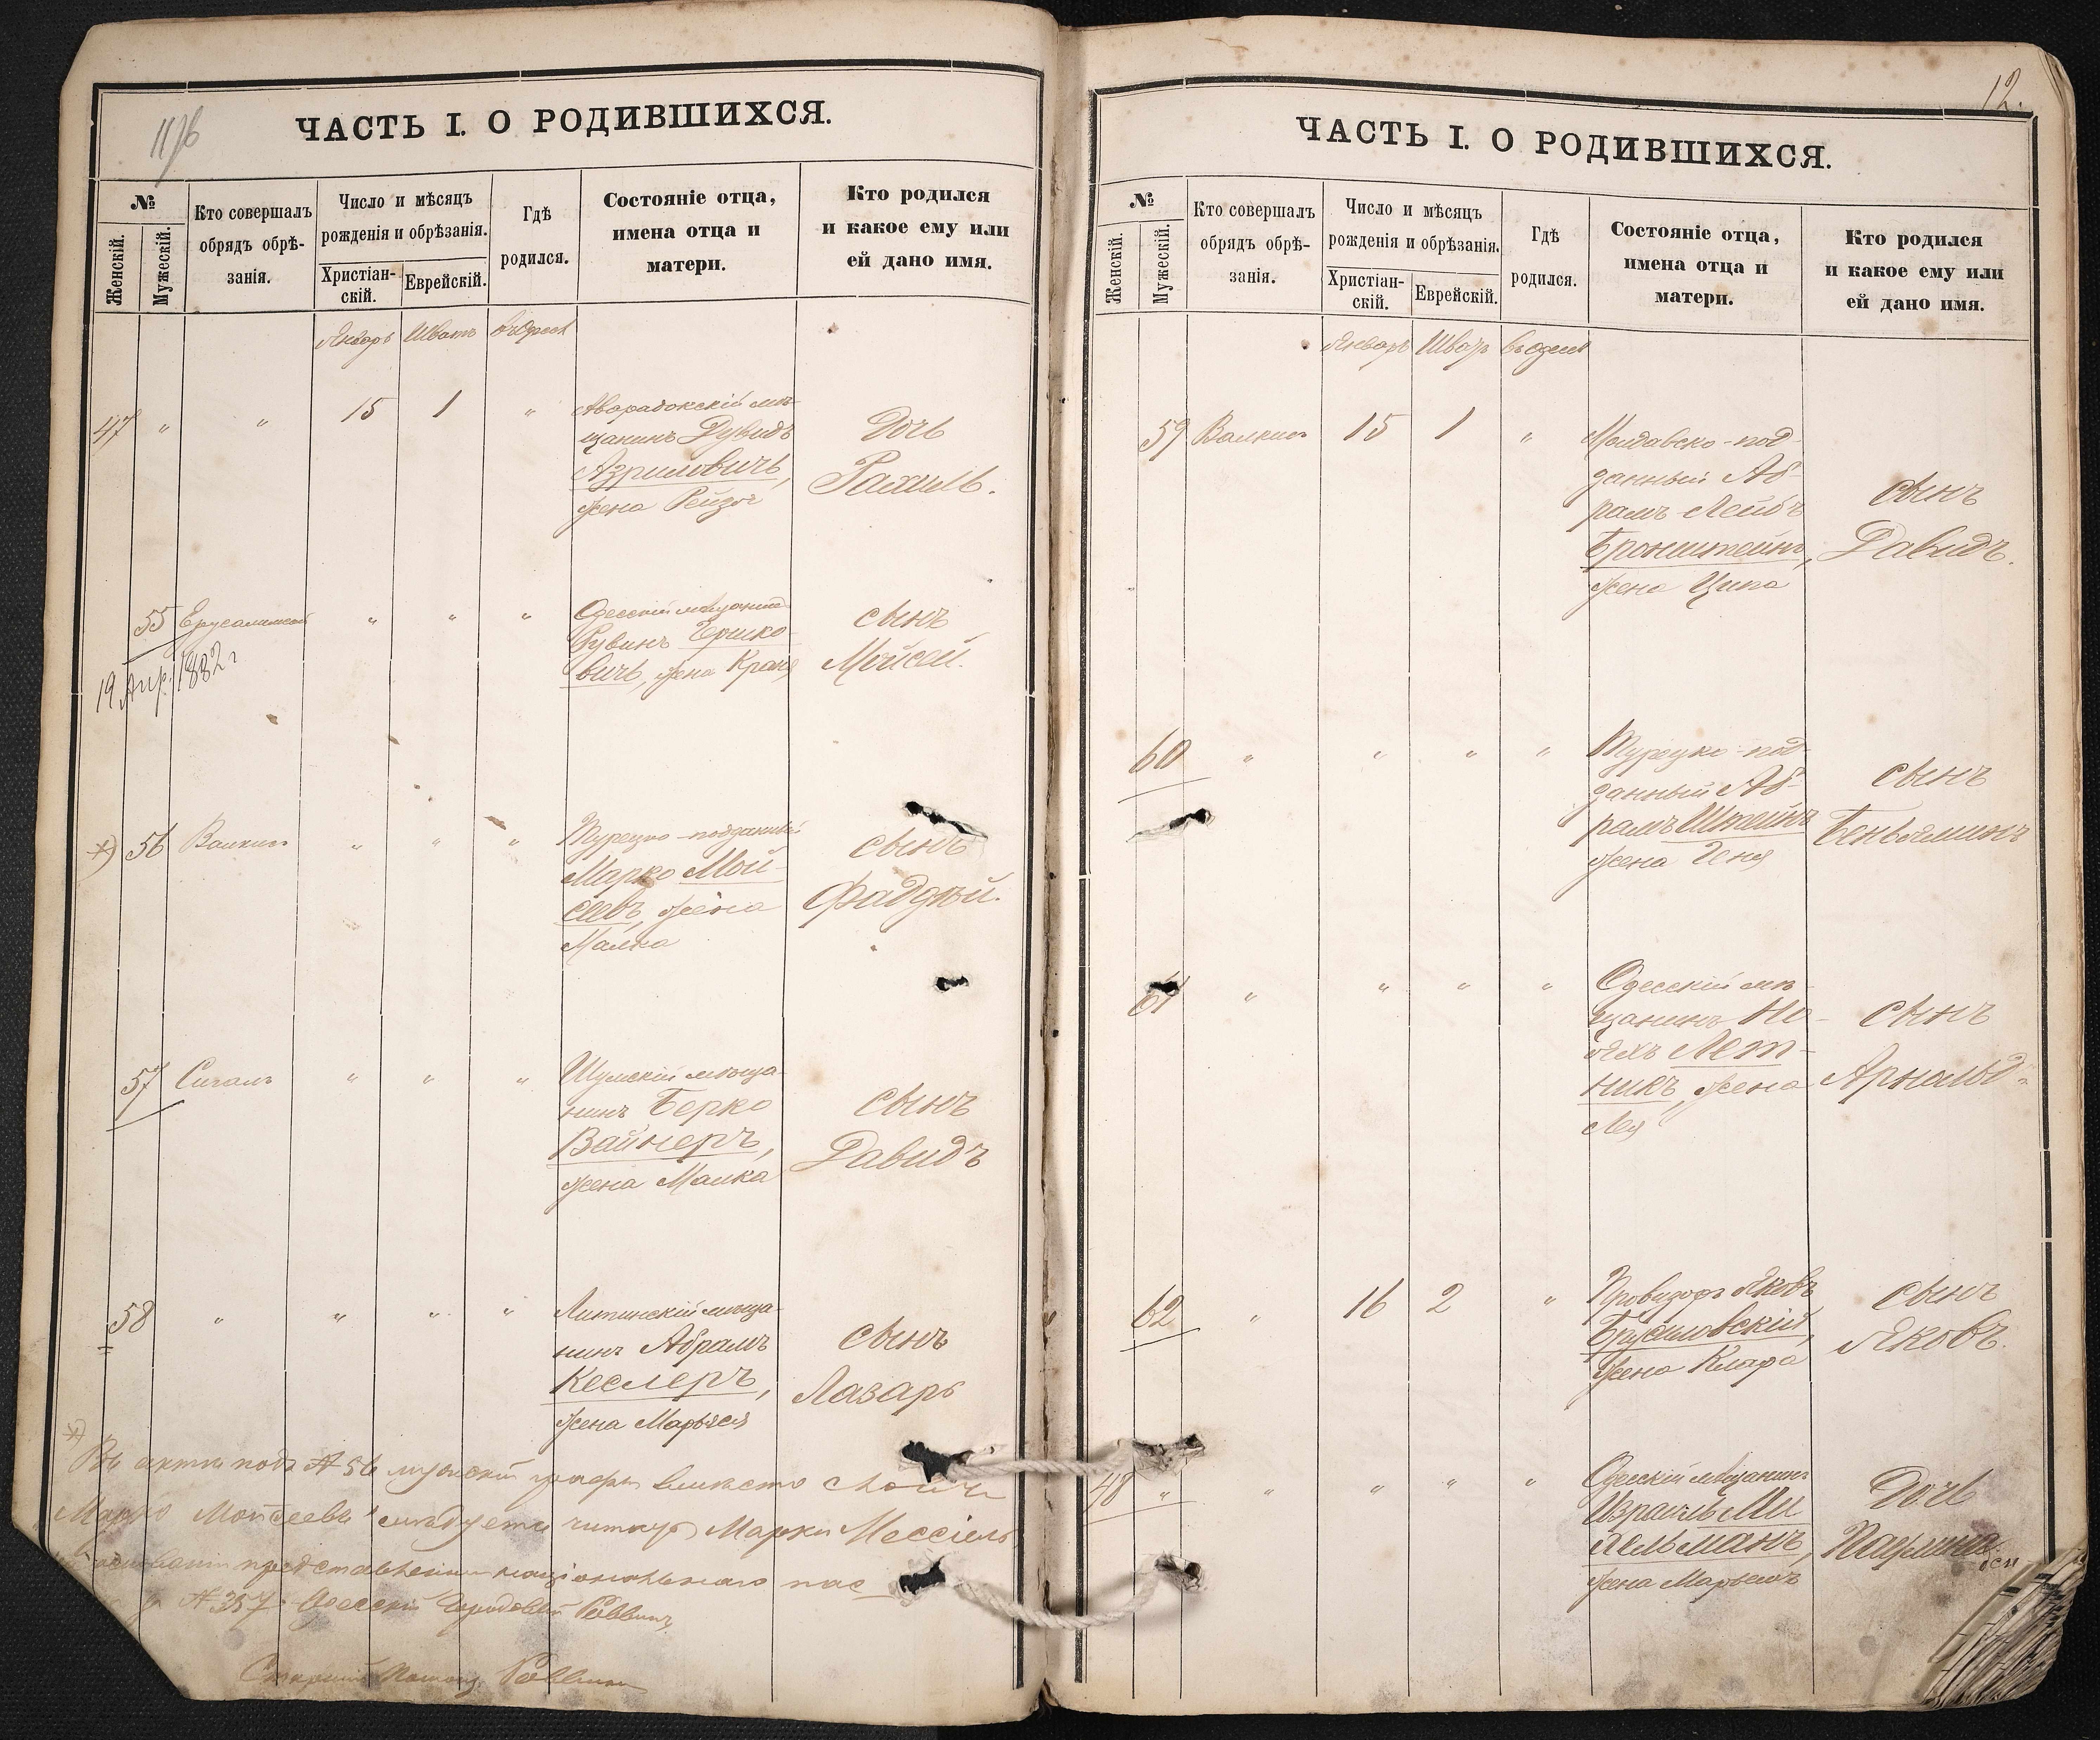 ЧАСТЬ I. О РОДИВШИХСЯ.
№
Женскій.
Мужескій.
Кто совершалъ
обрядъ обрѣ-
занія.
Число и мѣсяцъ
рожденія и обрѣзанія.
Христіан-
скій.
Еврейскій.
Гдѣ
родился.
Состояніе отца,
имена отца и
матери.
Кто родился
и какое ему или
ей дано имя.
Январь Шватъ
47 " " 15 1 "
щанинъ Дувидъ
Азриловичъ,
жена Рейзя
Дочь
Рахиль.
55 " " "
19 Апр. 1882 г
Одесскій мѣщанинъ
Рувинъ Гершко-
вичъ, жена Краня
сынъ
Мойсей.
*) 56 " " "
Турецко-подданный
Марко Мой-
сеевъ, жена
Малка
сынъ
Фаддѣй.
57 Сигалъ " " "
Шумскій мѣща-
нинъ Берко
Вайнеръ,
жена Малка
сынъ
Давидъ
58 " " " "
Литинскій мѣща-
нинъ Абрамъ
Кеслеръ,
жена Марьяся
сынъ
Лазарь
*)
Въ актѣ подъ № 56 мужской графы вмѣсто
Марко Мойсеевъ" слѣдуетъ читать Марки
№ 357. Одесскій Городовой Раввинъ
12.
ЧАСТЬ I. О РОДИВШИХСЯ.
№
Женскій.
Мужескій.
Кто совершалъ
обрядъ обрѣ-
занія.
Число и мѣсяцъ
рожденія и обрѣзанія.
Христіан-
скій.
Еврейскій.
Гдѣ
родился.
Состояніе отца,
имена отца и
матери.
Кто родился
и какое ему или
ей дано имя.
Январь Шватъ въ Одессѣ
59 15 1 "
Молдавско-под-
данный Аб-
рамъ-Лейбъ
Бронштейнъ,
жена Ципа
сынъ
Давидъ.
60 " " " "
Турецко-под-
данный Аб-
рамъ Штейнъ
жена Геня
сынъ
Беньяминъ
61 " " " "
Одесскій мѣ-
щанинъ Но-
Лет-
никъ, жена
Лея
сынъ
Арнольд
62 " 16 2 "
Провизоръ Яковъ
Брусиловскій,
жена Клара
сынъ
Яковъ.
48 " " " " "
Одесскій мѣщанинъ
Израиль Ми
жена Марьемъ
Дочь